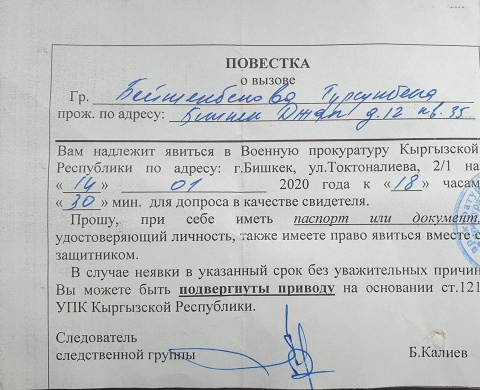 ПОВЕСТКА
о вызове
Гр. Бейшенбекова Турсунбека
прож. по адресу: Бишкек Джал д.12 кв. 35
Вам надлежит явиться в Военную прокуратуру Кыргызской
Республики по адресу: г.Бишкек, ул.Токтоналиева, 2/1 на
« 14 » 01 2020 года к «18» часам
«30» мин. для допроса в качестве свидетеля.
Прошу, при себе иметь паспорт или документ,
удостоверяющий личность, также имеете право явиться вместе с
защитником.
В случае неявки в указанный срок без уважительных причин
Вы можете быть подвергнуты приводу на основании ст.121
УПК Кыргызской Республики.
Следователь
следственной группы Б.Калиев